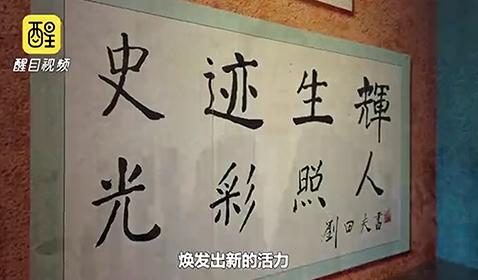 醒
醒目视频
史迹生輝
光彩照人
劉田夫書
焕发出新的活力